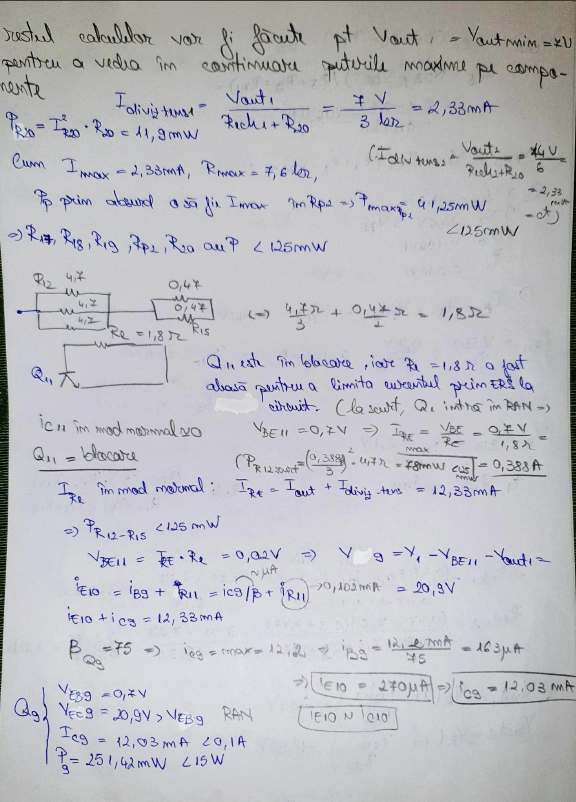 restul calculelor vor fi făcute pt Vout₁ = Voutmin = 7V
pentru a vedea în continuare puterile maxime pe compo-
nente
I diviz tens₁ = Vout₁ / (R1ch1 + R20) = 7 V / 3 kΩ = 2,33mA
P_R20 = I²_R20 · R20 = 11,9mW
(I div tens₂ = Vout₂ / (R1ch2 + R20) = 14 V / 6 = 2,33 mA = ct)
Cum Imax = 2,33mA, Rmax = 7,6 kΩ,
Pp prim absurd că să fie Imax în Rp2 => Pmax_Rp2 = 41,25mW
<125mW
=> R17, R18, R19, Rp2, R20 au P < 125mW
R12 4,7
4,7
4,7
0,47
0,47
R15
(=) 4,7Ω / 3 + 0,47Ω / 2 = 1,8Ω
Re = 1,8Ω
Q11
Q11 este în blocare, iar Re = 1,8Ω a fost
aleasă pentru a limita curentul prin ERS la
circuit. (la scurt, Q11 intră în RAN =>
iC11 în mod normal ≈0
Q11 = blocare
VBE11 = 0,7V => I_RE max = VBE / RE = 0,7V / 1,8Ω = 0,388A
(P_R12scurt = (0,388 / 3)² · 4,7Ω = 78mW
I_Re în mod normal: I_RE = Iout + Idiviz-tens = 12,33mA
=> P_R12-R15 <125mW
VBE11 = I_RE · Re = 0,02V => V 9 = V1 - VBE11 - Vout1 = 20,9V
iE10 = iB9 + iR11 = iC9/β + iR11 → 0,103mA
~μA
iE10 + iC9 = 12,33mA
β_Q9 = 75 => iC9 = max = 12,2 => iB9 = 12,2 mA / 75 = 163μA
=> iE10 = 270μA => iC9 = 12,03 mA
iE10 ≈ iC10
Q9
VEB9 = 0,7V
VEC9 = 20,9V > VEB9 RAN
IC9 = 12,03 mA < 0,1A
P9 = 251,42mW < 15W